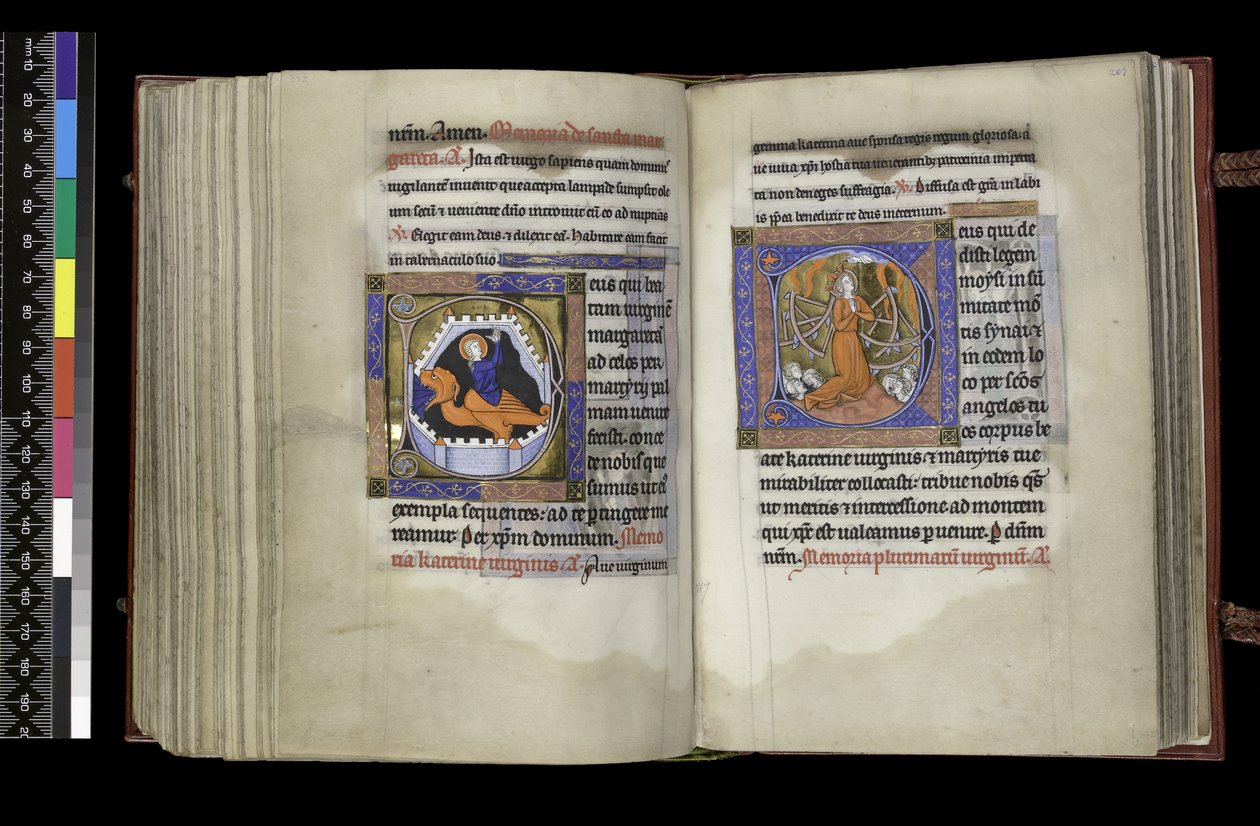 nrm. Amen. Memoria de sancta mar
gareta. A. Ista est uirgo sapiens quam dominus
uigilantem inuenit que accepta lampade sumpsit ole
um secum ⁊ ueniente dño introiuit cū eo ad nuptias
℣. Elegit eam deus. ⁊ elegit eā. Habitare eam facit
in tabernaculo suo
eus qui bea
tam uirginē
margaretā
ad celos per
martyrij pal
mam uenire
fecisti. conce
de nobis que
sumus ut eius
exempla sequentes: ad te ꝑtingere me
reamur. Per xp̄m dominum. Memo
ria katerine uirginis. A. Aue uirginum
207
gemma katerina aue sponsa regis regum gloriosa. a
ue uiua xp̄i hostia tua uenerantibꝫ patrocinia impetra
ta non deneges suffragia. ℣. Diffusa est grā in labi
is ꝓpea benedixit te deus ineternum.
eus qui de
disti legem
moysi in sū
mitate mō
tis synai ⁊
in eodem lo
co per scōs
angelos tu
os corpus be
ate katerine uirginis ⁊ martyris tue
mirabiliter collocasti: tribue nobis qs̄
ut meritis ⁊ intercessione. ad montem
qui xp̄c est ualeamus puenire. ꝑ dn̄m
nr̄m. Memoria plurimarū uirginū. A.